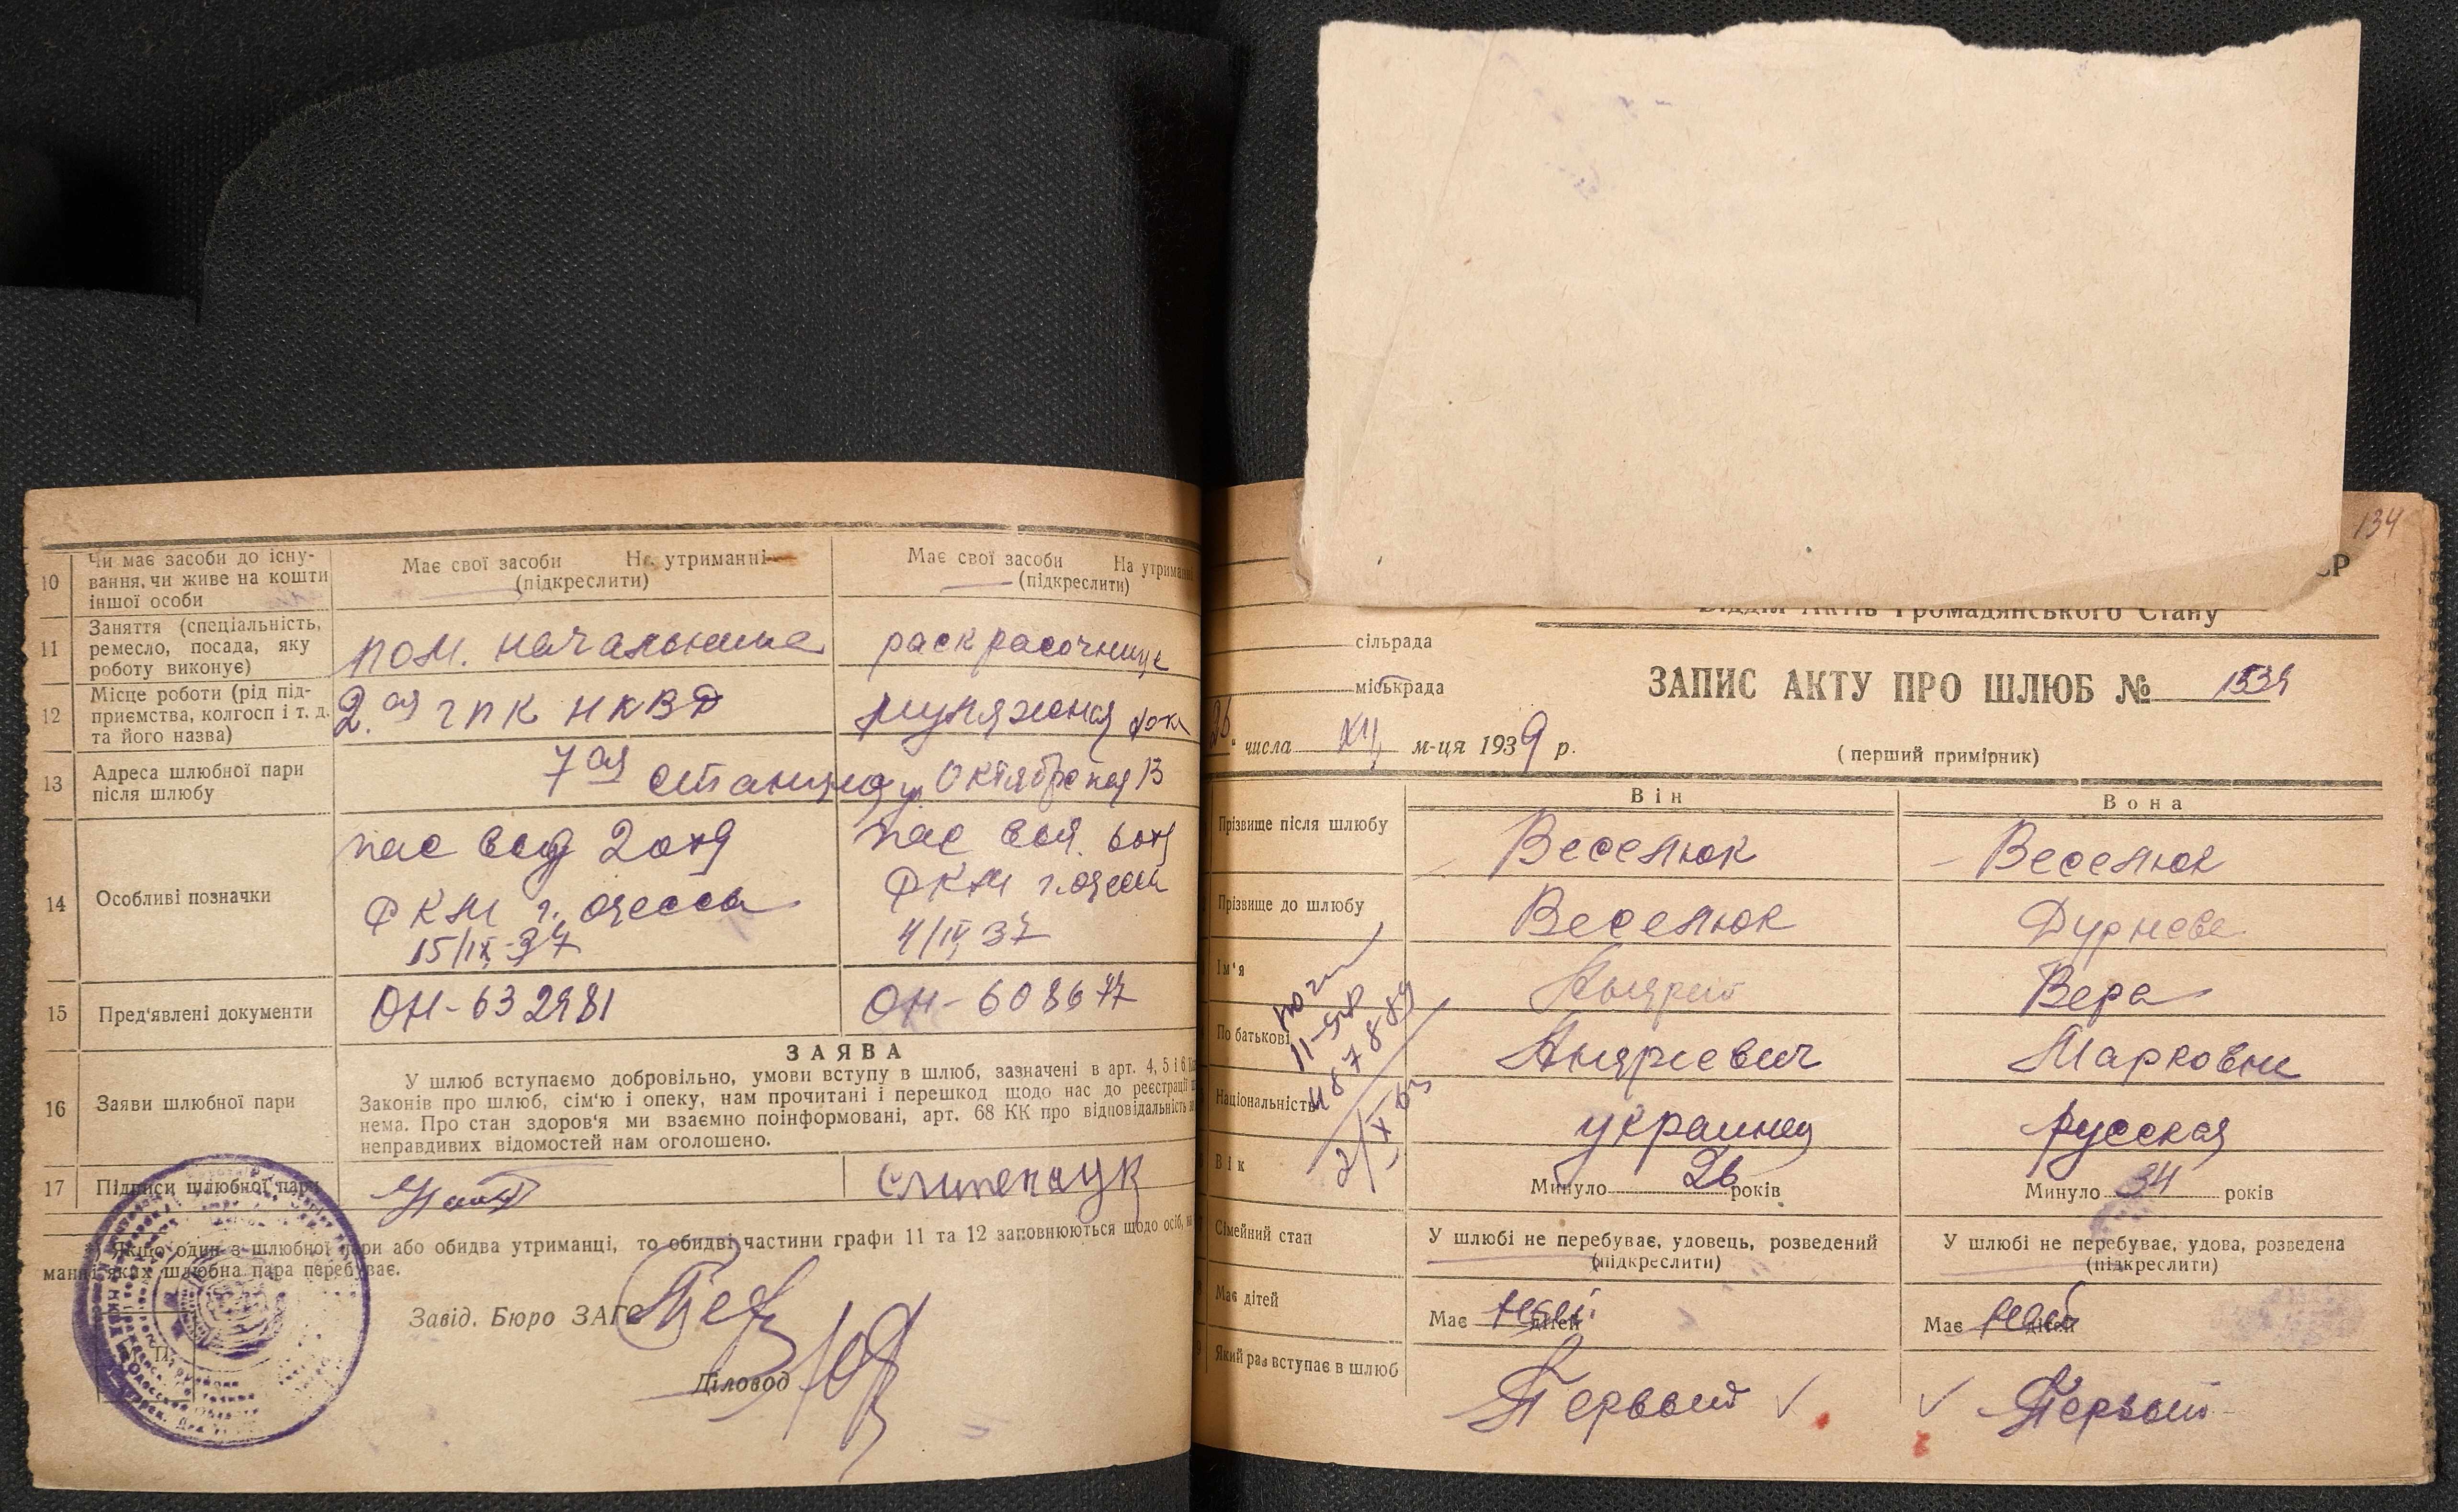 10 Чи має засоби до існу-
вання, чи живе на кошти
іншої особи
Має свої засоби На утриманні
(підкреслити)
Має свої засоби На утриманні
(підкреслити)
11 Заняття (спеціальність,
ремесло, посада, яку
роботу виконує)
пом. начальника
раскрасочница
12 Місце роботи (рід під-
приємства, колгосп і т. д.
та його назва)
2.ая ГПК НКВД
муляжная
13 Адреса шлюбної пари
після шлюбу
7ая станция ул. Октябрская 13
14 Особливі позначки
пас выд 2 отд
ФКМ г. Одесса
15/IX-37
пас выд. 6 отд
ФКМ г. Одесса
4/IV 37
15 Пред'явлені документи
ОН-632981
ОН-608677
16 Заяви шлюбної пари
ЗАЯВА
У шлюб вступаємо добровільно, умови вступу в шлюб, зазначені в арт. 4, 5 і 6
Законів про шлюб, сім'ю і опеку, нам прочитані і перешкод щодо нас до реєстрації
нема. Про стан здоров'я ми взаємно поінформовані, арт. 68 КК про відповідальність
неправдивих відомостей нам оголошено.
17 Підписи шлюбної пари
Якщо один з шлюбної пари або обидва утриманці, то обидві частини графи 11 та 12 заповнюються щодо осіб, на
манні яких шлюбна пара перебуває.
Завід. Бюро ЗАГС
Діловод
134
СР
Відділ Актів Громадянського Стану
сільрада
міськрада
ЗАПИС АКТУ ПРО ШЛЮБ № 1539
26 " числа XII м-ця 1939 р.
(перший примірник)
Він
Вона
Прізвище після шлюбу
Веселюк
Веселюк
Прізвище до шлюбу
Веселюк
Дурнева
Ім'я
Андрей
Вера
По батькові
Андреевич
Марковна
Національність
украинец
русская
11-ЯР
487889
2/X 63
Вік
Минуло 26 років
Минуло 34 років
Сімейний стан
У шлюбі не перебуває, удовець, розведений
(підкреслити)
У шлюбі не перебуває, удова, розведена
(підкреслити)
Має дітей
Має дітей
Має дітей
Який раз вступає в шлюб
Первый
Первый